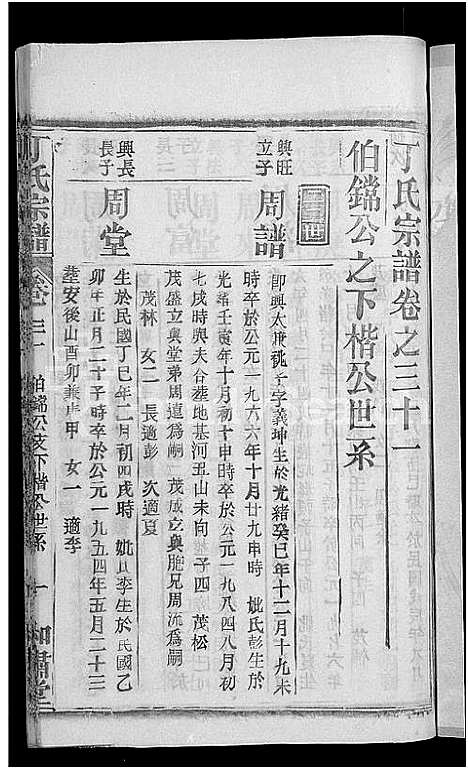 丁氏宗譜卷之三十一
伯鐺公之下楷公世系
興旺
立子
周譜
時卒於公元一九六六年十月廿九申時 妣氏彭生於
光緒壬寅年十月初十申時卒於公元一九八四八月初
七戌時與夫合葬地基河丑山未向 子四 茂松
茂盛立與堂弟周道為嗣 茂成立與胞兄周流為嗣
茂林 女二 長適彭 次適夏
興長
長子
周堂
生於民國丁巳年二月初四戌時 妣氏李生於民國乙
卯年正月二十子時卒於公元一九五四年五月二十三
葬安後山酉卯兼庚甲 女一 適李
丁氏宗譜 卷三一 伯鐺公支下楷公世系 一